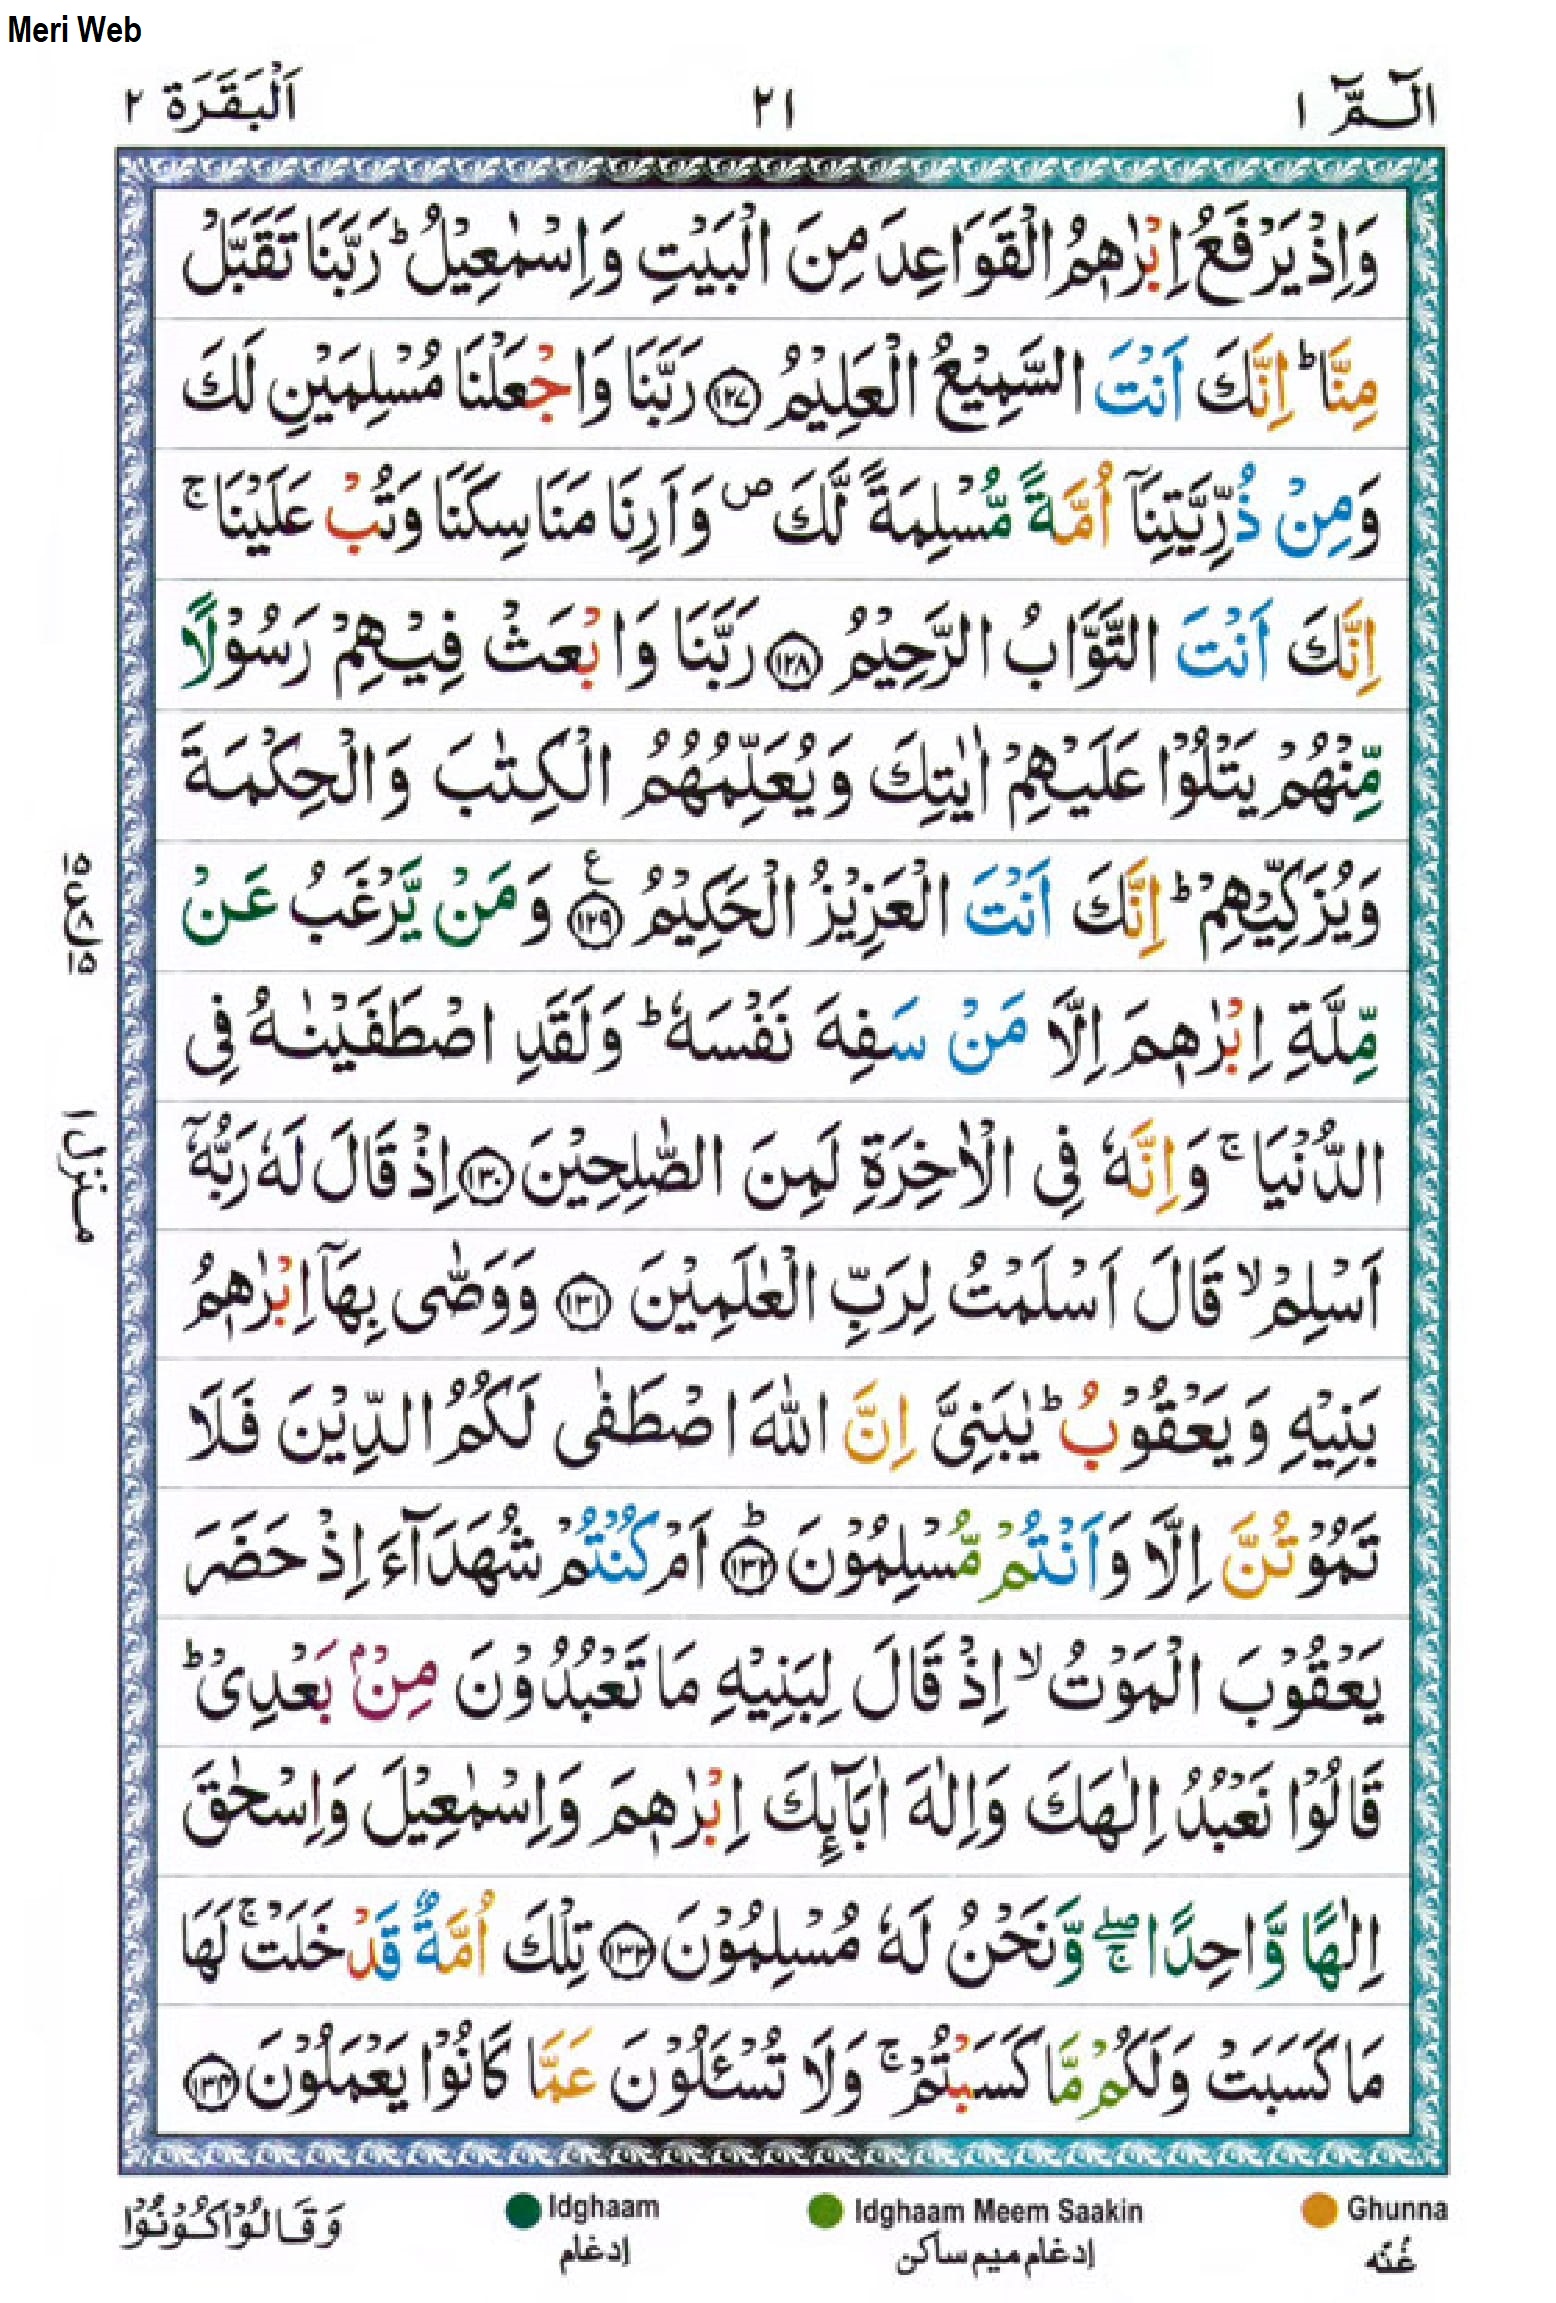 Meri Web
الٓمّٓ ١
٢١
اَلْبَقَرَة ٢
وَاِذْ يَرْفَعُ اِبْرٰهٖمُ الْقَوَاعِدَ مِنَ الْبَيْتِ وَاِسْمٰعِيْلُ ؕ رَبَّنَا تَقَبَّلْ
مِنَّا ؕ اِنَّكَ اَنْتَ السَّمِيْعُ الْعَلِيْمُ ﴿١٢٧﴾ رَبَّنَا وَاجْعَلْنَا مُسْلِمَيْنِ لَكَ
وَمِنْ ذُرِّيَّتِنَاۤ اُمَّةً مُّسْلِمَةً لَّكَ ۪ وَاَرِنَا مَنَاسِكَنَا وَتُبْ عَلَيْنَا ۚ
اِنَّكَ اَنْتَ التَّوَّابُ الرَّحِيْمُ ﴿١٢٨﴾ رَبَّنَا وَابْعَثْ فِيْهِمْ رَسُوْلًا
مِّنْهُمْ يَتْلُوْا عَلَيْهِمْ اٰيٰتِكَ وَيُعَلِّمُهُمُ الْكِتٰبَ وَالْحِكْمَةَ
وَيُزَكِّيْهِمْ ؕ اِنَّكَ اَنْتَ الْعَزِيْزُ الْحَكِيْمُ ﴿١٢٩﴾ ع وَمَنْ يَّرْغَبُ عَنْ
مِّلَّةِ اِبْرٰهٖمَ اِلَّا مَنْ سَفِهَ نَفْسَهٗ ؕ وَلَقَدِ اصْطَفَيْنٰهُ فِى
الدُّنْيَا ۚ وَاِنَّهٗ فِى الْاٰخِرَةِ لَمِنَ الصّٰلِحِيْنَ ﴿١٣٠﴾ اِذْ قَالَ لَهٗ رَبُّهٗۤ
اَسْلِمْ ۙ قَالَ اَسْلَمْتُ لِرَبِّ الْعٰلَمِيْنَ ﴿١٣١﴾ وَوَصّٰى بِهَاۤ اِبْرٰهٖمُ
بَنِيْهِ وَيَعْقُوْبُ ؕ يٰبَنِىَّ اِنَّ اللّٰهَ اصْطَفٰى لَكُمُ الدِّيْنَ فَلَا
تَمُوْتُنَّ اِلَّا وَاَنْتُمْ مُّسْلِمُوْنَ ؕ﴿١٣٢﴾ اَمْ كُنْتُمْ شُهَدَآءَ اِذْ حَضَرَ
يَعْقُوْبَ الْمَوْتُ ۙ اِذْ قَالَ لِبَنِيْهِ مَا تَعْبُدُوْنَ مِنْۢ بَعْدِىْ ؕ
قَالُوْا نَعْبُدُ اِلٰهَكَ وَاِلٰهَ اٰبَآئِكَ اِبْرٰهٖمَ وَاِسْمٰعِيْلَ وَاِسْحٰقَ
اِلٰهًا وَّاحِدًا ۖۚ وَّنَحْنُ لَهٗ مُسْلِمُوْنَ ﴿١٣٣﴾ تِلْكَ اُمَّةٌ قَدْ خَلَتْ ۚ لَهَا
مَا كَسَبَتْ وَلَكُمْ مَّا كَسَبْتُمْ ۚ وَلَا تُسْـَٔلُوْنَ عَمَّا كَانُوْا يَعْمَلُوْنَ ﴿١٣٤﴾
منزل ١
Ghunna
غُنّه
Idghaam Meem Saakin
إدغام ميم ساكن
Idghaam
إدغام
وَقَالُوْا كُوْنُوْا